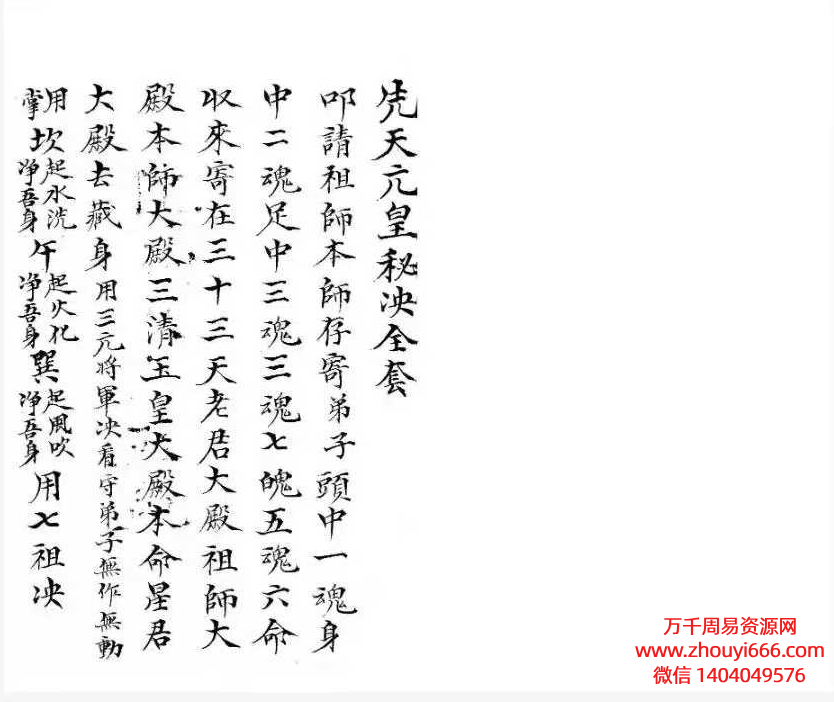 先天元皇秘决全套
叩請祖師本師存寄弟子頭中一魂身
中二魂足中三魂三魂七魄五魂六命
收來寄在三十三天老君大殿祖師大
殿本師大殿三清玉皇大殿本命星君
大殿去藏身用三元将軍决看守弟子無作無動
用掌坎起水洗净吾身午起火化净吾身巽起風吹净吾身用七祖决
万千周易资源网
www.zhouyi666.com
微信 1404049576